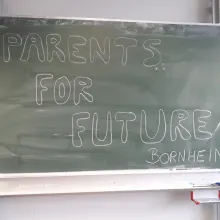 PARENTS
FOR
FUTURE
BORNHEIM